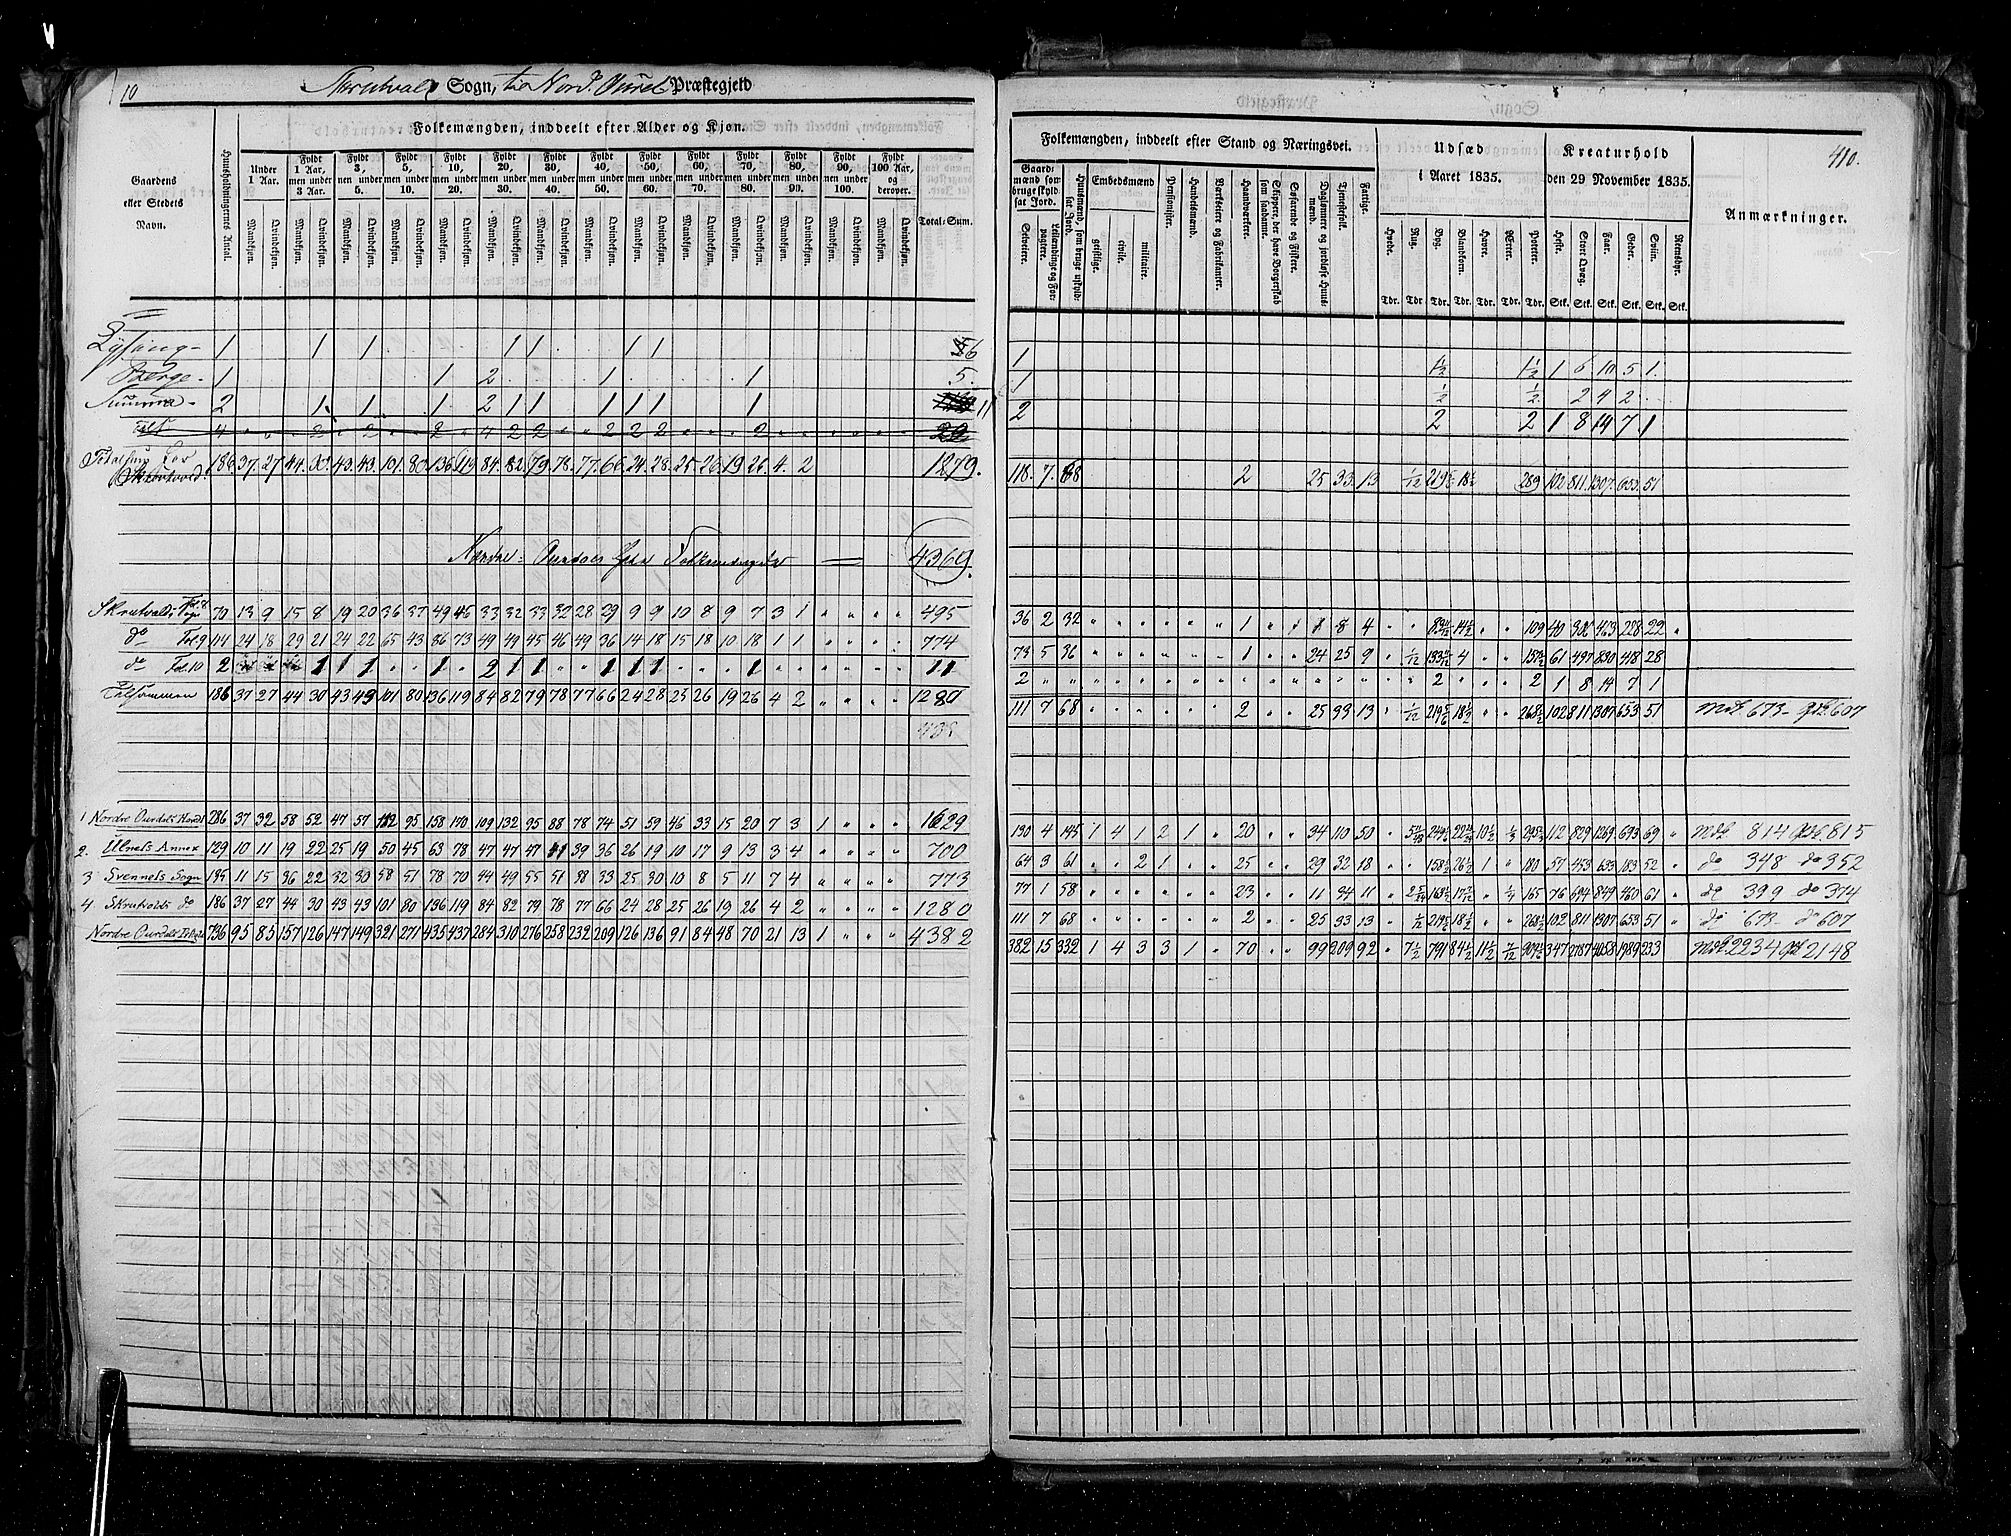 10
Skrutvals Sogn, til Nord. Aurdal Præstegjeld
Folkemængden, inddeelt efter Alder og Kjøn.
Gaardens eller Stedets Navn.
Huusholdningernes Antal.
Under 1 Aar.
Fyldt 1 Aar, men under 3 Aar.
Fyldt 3, men under 5.
Fyldt 5, men under 10.
Fyldt 10, men under 20.
Fyldt 20, men under 30.
Fyldt 30, men under 40.
Fyldt 40, men under 50.
Fyldt 50, men under 60.
Fyldt 60, men under 70.
Fyldt 70, men under 80.
Fyldt 80, men under 90.
Fyldt 90, men under 100.
Fyldt 100 Aar, og derover.
Mandkjøn. Qvindekjøn.
Total-Sum.
1 1 1 1 1 1 1 6
Berge - 1 1 2 1 1 5.
Summa - 2 1 1 1 2 1 1 1 1 1 1 11
186 37 27 44 30 43 43 101 80 136 119 84 82 79 78 77 66 24 28 25 26 19 26 4 2 1279.
4369.
Skrutvalds 70 13 9 15 8 19 20 36 37 49 45 33 32 33 32 28 29 9 9 10 8 9 7 3 1 " " " " 495
do Fol. 9 114 24 18 29 21 24 22 65 43 86 73 49 49 45 46 49 36 14 18 15 18 10 18 1 1 " " " " 774
do Fol. 10 2 1 1 1 " " 1 " 2 1 1 " " 1 1 1 1 " " " 1 " " " " " " 11
Tilsammen 186 37 27 44 30 43 43 101 80 136 119 84 82 79 78 77 66 24 28 25 26 19 26 4 2 " " " " 1280
1 Nordre Ourdals Hoveds 286 37 32 58 52 47 57 112 95 158 170 109 132 95 88 78 74 51 59 46 33 15 20 7 3 1 " " " 1629
2. Ulnets Annex 129 10 11 19 22 25 19 50 45 63 78 47 47 47 41 39 36 26 19 10 17 9 13 3 4 " " " " 700
3 Svennets Sogn 135 11 15 36 22 32 30 58 51 78 70 44 49 55 51 38 33 25 30 10 8 5 11 7 4 " " " " 773
4. Skrutvolds do 186 37 27 44 30 43 43 101 80 136 119 84 82 79 78 77 66 24 28 25 26 19 26 4 2 " " " " 1280
Nordre Ourdals 736 95 85 157 126 147 149 321 271 435 437 284 310 276 258 232 209 126 136 91 84 48 70 21 13 1 " " " 4382
410.
Folkemængden, inddeelt efter Stand og Næringsvei.
Udsæd i Aaret 1835.
Kreaturhold den 29 November 1835.
Anmærkninger.
Gaardmænd som bruge skyldsat Jord.
Selveiere.
Leilændinge og Forpagtere.
Huusmænd, som bruge uskyldsat Jord.
Embedsmænd
geistlige.
civile.
militaire.
Pensionister.
Handelsmænd.
Værkseiere og Fabrikanter.
Haandværkere.
Skippere, der have Borgerskab som saadanne.
Søfarende og Fiskere.
Daglønnere og jordløse Huusmænd.
Tjenestefolk.
Fattige.
Hvede. Rug. Byg. Blandkorn. Havre. Erter. Poteter.
Heste. Stort Qvæg. Faar. Geder. Sviin. Rensdyr.
Tdr. Tdr. Tdr. Tdr. Tdr. Tdr. Tdr. Stk. Stk. Stk. Stk. Stk. Stk.
1 1½ 1½ 1 6 10 5 1.
1 ½ ½ 2 4 2
2 2 2 1 8 14 7 1
118. 7. 68 2 25 33 13 1/12 289 102 811 1307 653 51
36 2 32 " " " " " " 1 " 1 8 4 109 40 306 463 228 22 "
73 5 36 " " " " " " 1 " " 24 25 9 " 1/12 4 " " 61 497 830 418 28
2 " " " " " " " " " " " " " " " " 2 " " " 2 1 8 14 7 1
111 7 68 2 " " 25 33 13 " 1/12 " " 102 811 1307 653 51 Mdk. 673 - Qdk. 607
130 4 145 1 4 1 2 1 " 20 " " 34 110 50 112 829 1269 693 69 " Mdk 814 Qdk 815
64 3 61 " " 2 1 " " 25 " " 29 32 18 " " 1 " 180 57 453 633 183 52 " do 348 do 352
77 1 58 " " " " " " 23 " " 11 34 11 " 165 76 694 849 460 61 " do 399 do 374
111 7 68 " " " " " " 2 " " 25 33 13 " 1/12 102 811 1307 653 51 " do 673 do 607
382 15 332 1 4 3 3 1 " 70 " " 99 209 92 " 7½ 791 84½ 347 2787 4058 1989 233 Mdk 2234 Qdk 2148